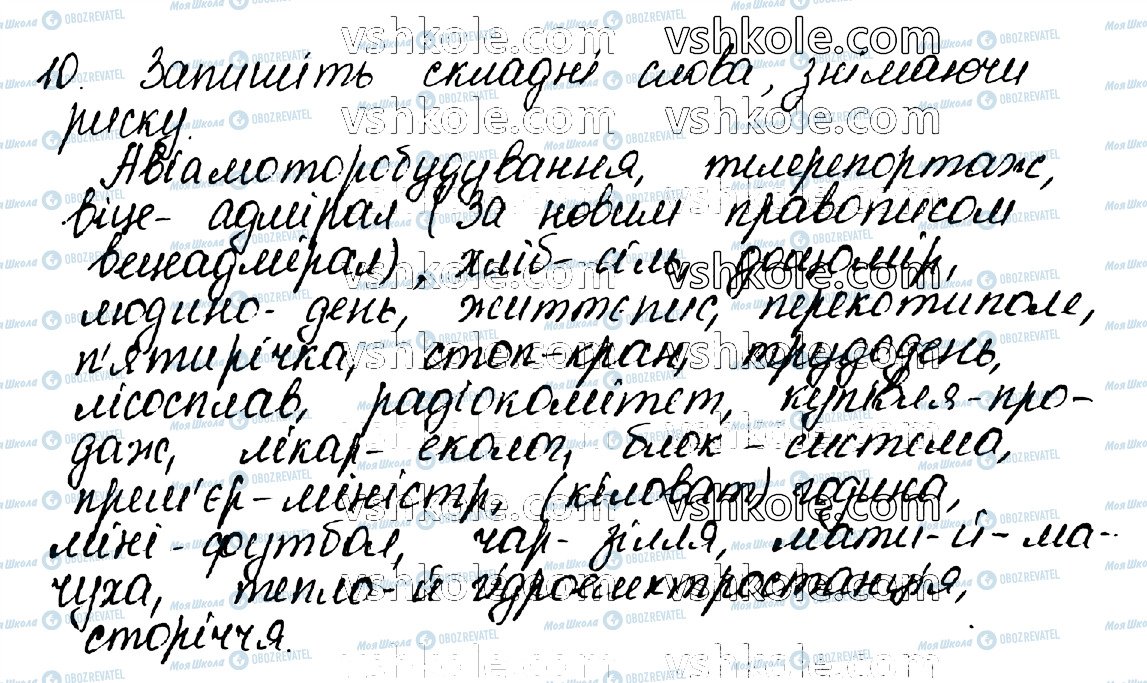 10. Запишіть складні слова, знімаючи
риску.
Авіамоторобудування, телерепортаж,
віце- адмірал (За новим правописом
віцеадмірал), хліб-сіль, доломір,
людино- день, життєпис, перекотиполе,
п'ятирічка, стоп-кран, трудодень,
лісосплав, радіокомітет, купівля-про-
даж, лікар- еколог, блок - система,
прем'єр-міністр, (кіловат) година,
міні -футбол, чар- зілля, мати-й-ма-
чуха, тепло-й гідроелектростанція,
сторіччя.